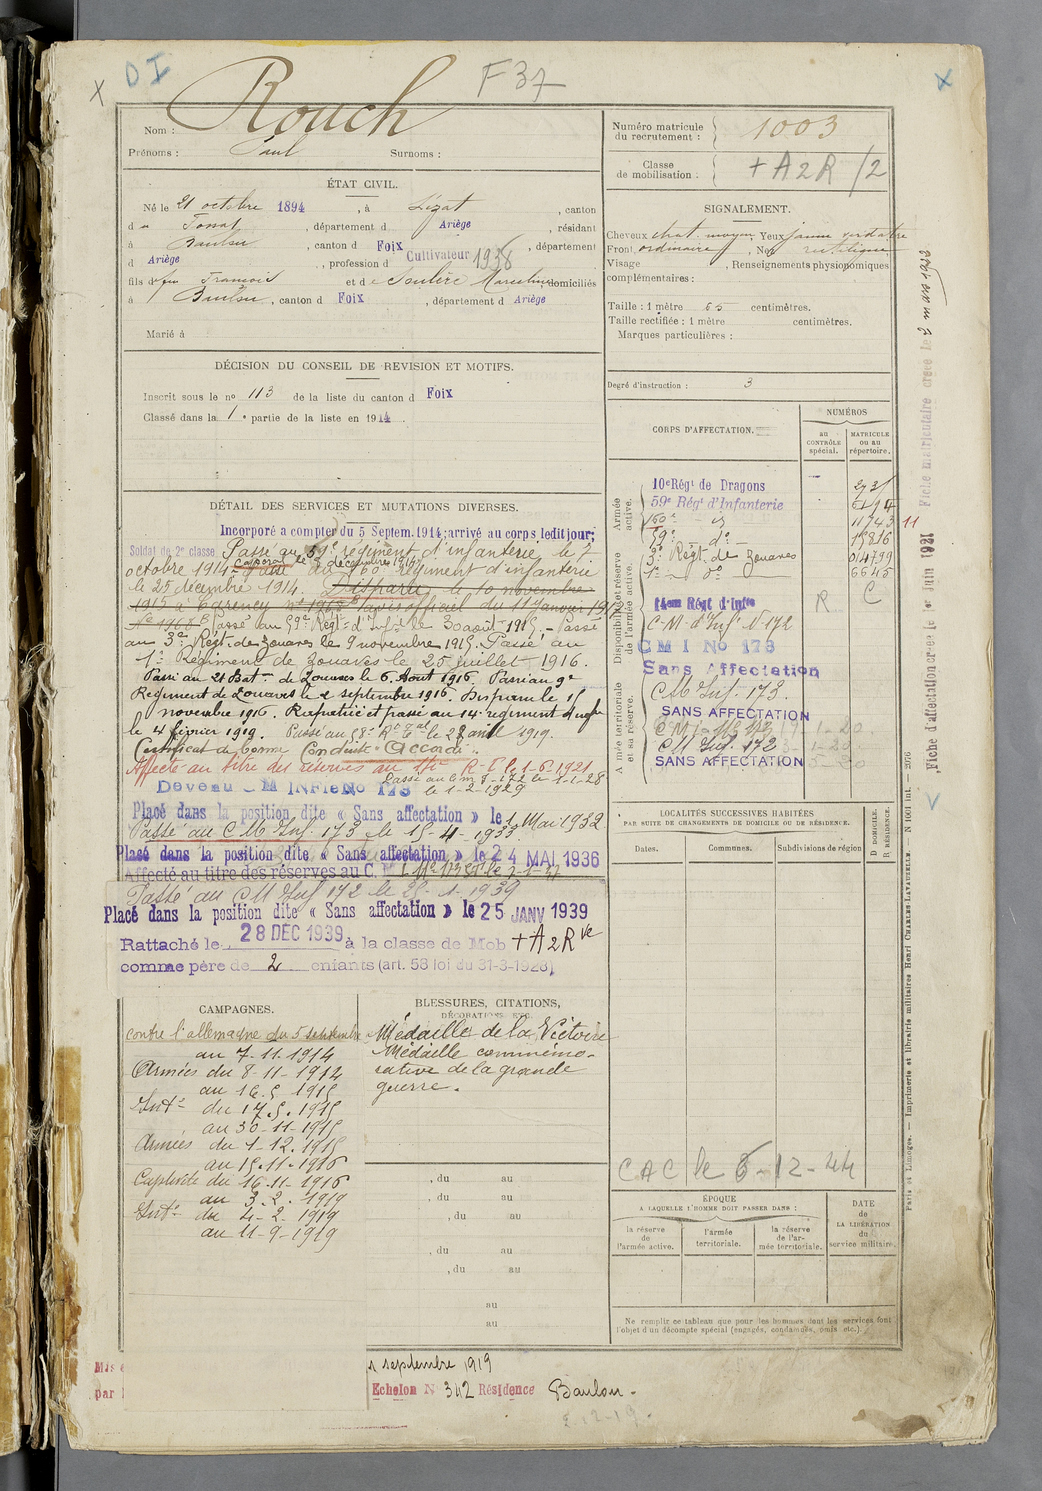 DI
F 37
Nom : Rouch
Prénoms : Paul Surnoms :
Numéro matricule du recrutement : 1003
Classe de mobilisation : + A 2 R /2
ÉTAT CIVIL.
Né le 21 octobre 1894, à Lézat, canton
d , département d Ariège, résidant
à Baulou, canton d Foix, département
d Ariège, profession d Cultivateur 1938
fils d feu François et d Marceline, domiciliés
à Baulou, canton d Foix, département d Ariège
Marié à
SIGNALEMENT.
Cheveux chat. moyen, Yeux jaune verdâtre
Front ordinaire, Nez rectiligne
Visage , Renseignements physionomiques
complémentaires :
Taille : 1 mètre 65 centimètres.
Taille rectifiée : 1 mètre centimètres.
Marques particulières :
Degré d'instruction : 3
DÉCISION DU CONSEIL DE REVISION ET MOTIFS.
Inscrit sous le no 113 de la liste du canton d Foix
Classé dans la 1e partie de la liste en 1914.
DÉTAIL DES SERVICES ET MUTATIONS DIVERSES.
Incorporé a compter du 5 Septem. 1914; arrivé au corps ledit jour;
Soldat de 2e classe. Passé au 59e régiment d'infanterie le 7
Caporal le 5 décembre 1914
octobre 1914. Passé au 160e régiment d'infanterie
le 25 décembre 1914. Disparu le 10 novembre
1915 à Carency No 1968 B (avis officiel du 11 janvier 1917
No 1968 B Passé au 59e Régt d'Inf le 30 août 1915, - Passé
au 3e Régt de Zouaves le 9 novembre 1915. Passé au
1er Régiment de Zouaves le 25 juillet 1916.
Passé au 21 Bat. de Zouaves le 6 Aout 1916. Passé au 9e
Régiment de Zouaves le 2 septembre 1916. Disparu le 15
novembre 1916. Rapatrié et passé au 14e régiment d'infie
le 4 février 1919. Passé au 58e le 28 avril 1919.
Certificat de bonne Conduite Accordé.
Affecté au titre des réserves au 14e R-I le 1-6-1921
Passé au C m I-172 le 1-1-28
Devenu C M INFie No 173 le 1-2-1929
Placé dans la position dite « Sans affectation » le 1 Mai 1932
Passé au C M Inf. 173 le 15-4-1933
Placé dans la position dite « Sans affectation » le 24 MAI 1936
Affecté au titre des réserves au C.
Passé au CM Inf 172 le 25-1-1939
Placé dans la position dite « Sans affectation » le 25 JANV 1939
Rattaché le 28 DEC 1939 à la classe de Mob + A 2 Rve
comme père de 2 enfants (art. 58 loi du 31-3-1928)
CORPS D'AFFECTATION.
NUMÉROS
AU CONTRÔLE spécial.
MATRICULE ou au répertoire.
Armée active.
Disponibilité et réserve de l'armée active.
Armée territoriale et sa réserve.
10e Régt de Dragons
59e Régt d'Infanterie
160e 11743 11
59e do
3e Régt de Zouaves 04799
1er do 6645
14eme Régt d'Infie R C
C-M-d'Inf. No 172
C M I No 173
Sans Affectation
C M Inf. 173.
SANS AFFECTATION
CM Inf. 172
SANS AFFECTATION
LOCALITÉS SUCCESSIVES HABITÉES
PAR SUITE DE CHANGEMENTS DE DOMICILE OU DE RÉSIDENCE.
Dates. Communes. Subdivisions de région
D DOMICILE. R RÉSIDENCE.
CAC le 6-12-44
CAMPAGNES.
contre l'allemagne du 5 septembre
au 7-11-1914
Armées du 8-11-1914
au 16.5 1915
Intr du 17.5.1915
au 30-11-1915
Armées du 1-12.1915
au 15.11-1916
Captivité du 16-11-1916
au 3.2.1919
Intr du 4-2-1919
au 11-9-1919
BLESSURES, CITATIONS,
DÉCORATIONS, ETC.
Médaille de la Victoire
Médaille commémo-
rative de la grande
guerre.
, du au
, du au
, du au
, du au
, du au
au
au
ÉPOQUE
A LAQUELLE L'HOMME DOIT PASSER DANS :
la réserve de l'armée active.
l'armée territoriale.
la réserve de l'armée territoriale.
DATE de LA LIBÉRATION du service militaire.
Ne remplir ce tableau que pour les hommes dont les services font
l'objet d'un décompte spécial (engagés, condamnés, omis etc.).
Mis
par
septembre 1919
Echelon No 342 Résidence Baulou.
Fiche d'affectation créée le 1er Juin 1931 Fiche matriculaire créée le 2 mars 1933
Paris et Limoges. — Imprimerie et librairie militaires Henri CHARLES-LAVAUZELLE. — N 1601 int. — 2076